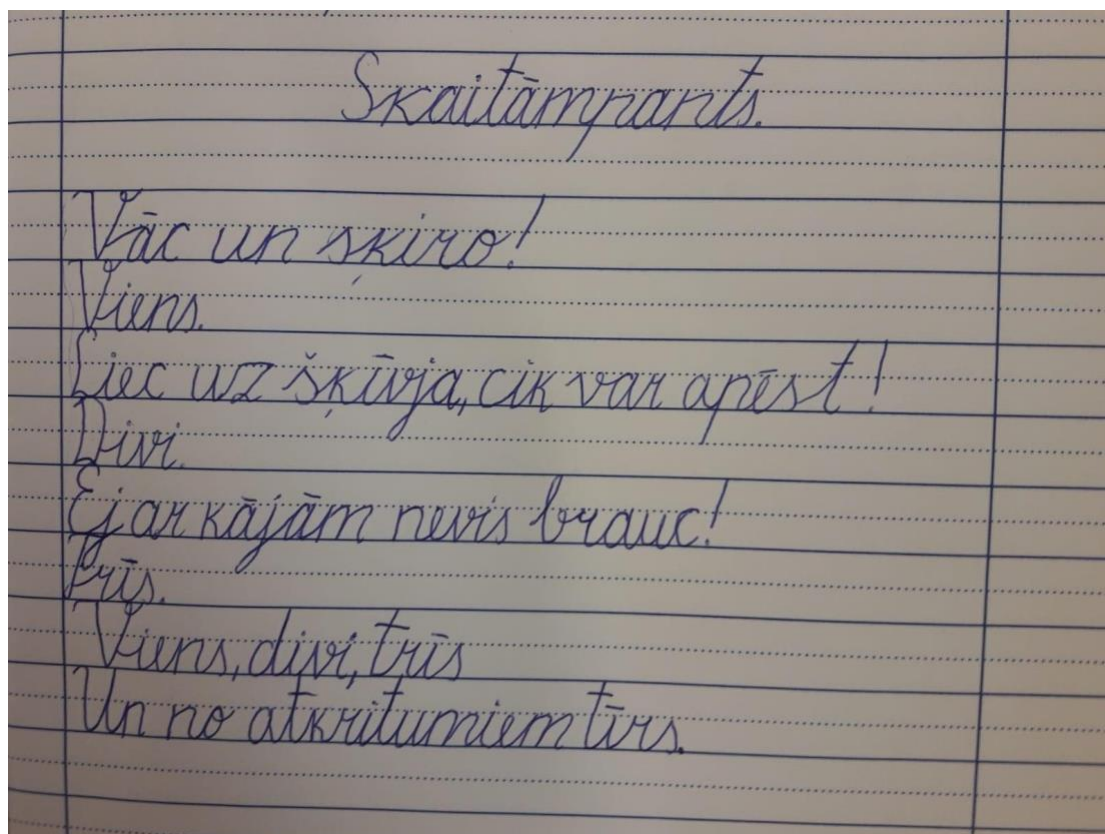 Skaitāmpants.
Vāc un šķiro!
Viens.
Liec uz šķīvja, cik var apēst!
Divi.
Ej ar kājām nevis brauc!
Trīs.
Viens, divi, trīs
Un no atkritumiem tīrs.